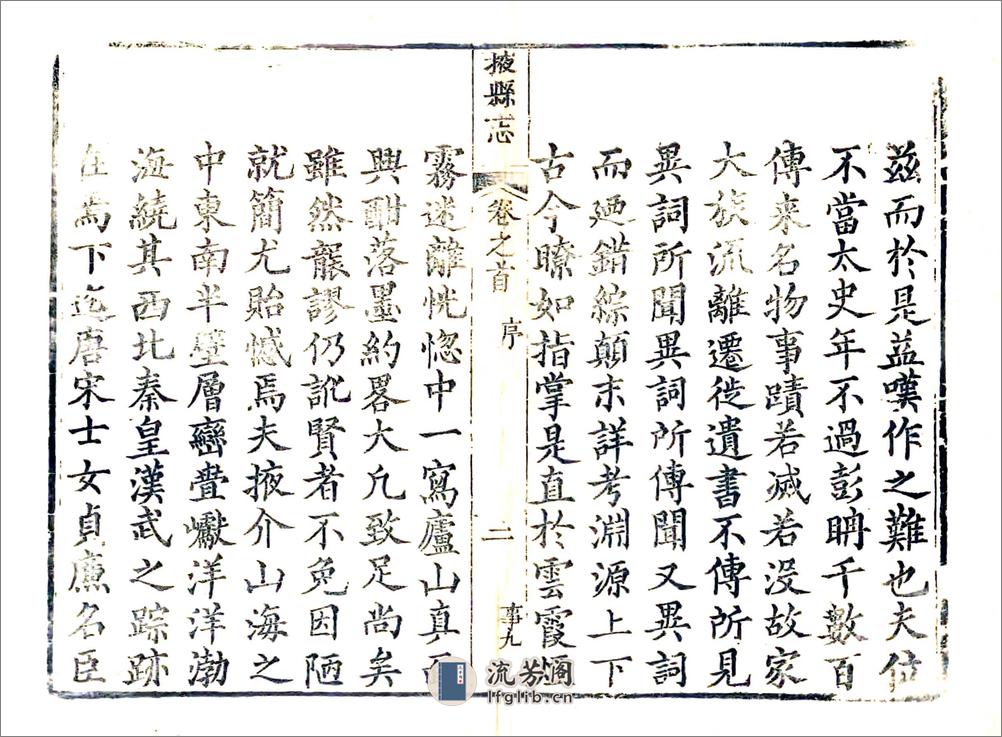 茲而於是益嘆作之難也夫位
不當太史年不過彭聃千數百
傳來名物事蹟若滅若沒故家
大族流離遷徙遺書不傳所見
異詞所聞異詞所傳聞又異詞
而廼錯綜顛末詳考淵源上下
古今瞭如指掌是直於雲霞烟
掖縣志
卷之首
序
二
事九
霧迷離恍惚中一寫廬山真面
興酣落墨約畧大凡致足尚矣
雖然龎謬仍訛賢者不免因陋
就簡尤貽憾焉夫掖介山海之
中東南半壁層巒疊巘洋洋渤
海繞其西北秦皇漢武之踪跡
在焉下迄唐宋士女貞廉名臣
流芳阁
lfglib.cn